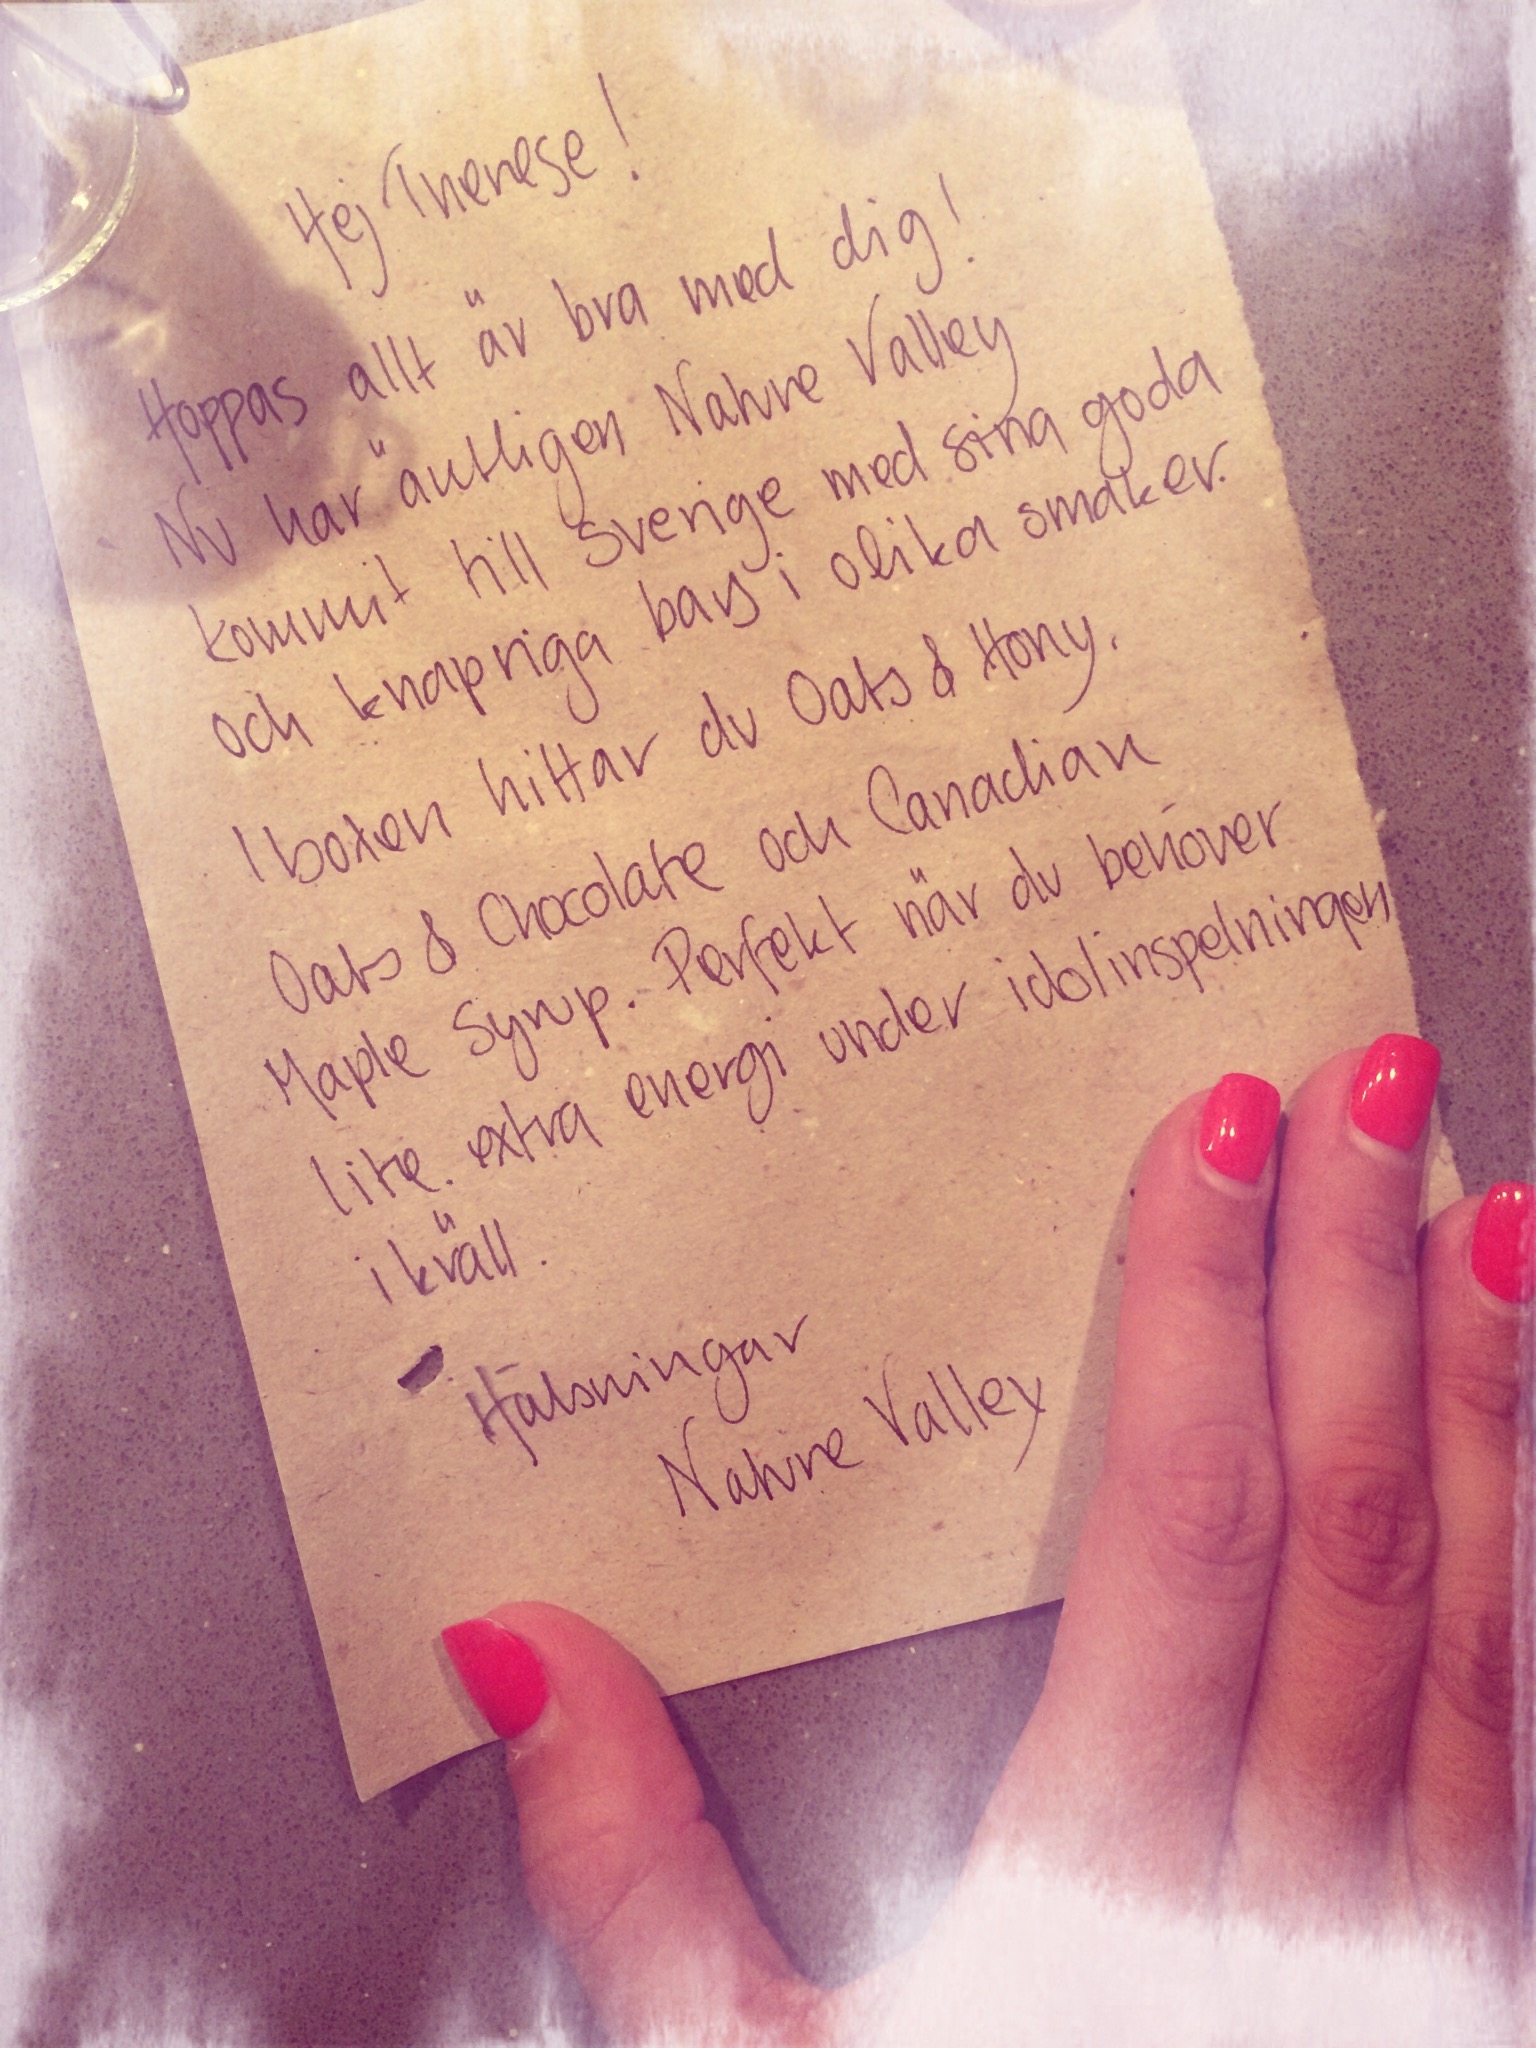 Hej Therese!
Hoppas allt är bra med dig!
Nu har äntligen Nature Valley
kommit till Sverige med sina goda
och knapriga bars i olika smaker.
I boxen hittar du Oats & Hony,
Oats & Chocolate och Canadian
Maple Syrup. Perfekt när du behöver
lite. extra energi under idolinspelningen
i kväll.
Hälsningar
Nature Valley